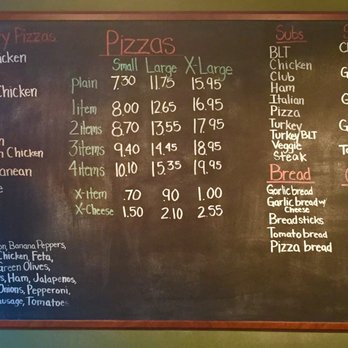 y Pizzas
icken
Chicken
n
n Chicken
ranean
e
on, Banana Peppers,
Chicken, Feta,
Green Olives,
s, Ham, Jalapenos,
Onions, Pepperoni,
usage, Tomatoes
Pizzas
Small Large X-Large
plain 7.30 11.75 15.95
1 item 8.00 12.65 16.95
2 items 8.70 13.55 17.95
3 items 9.40 14.45 18.95
4 items 10.10 15.35 19.95
X-item .70 .90 1.00
X-Cheese 1.50 2.10 2.55
Subs
BLT
Chicken
Club
Ham
Italian
Pizza
Turkey
Turkey/BLT
Veggie
Steak
Bread
Garlic bread
Garlic bread w/
Cheese
Breadsticks
Tomato bread
Pizza bread